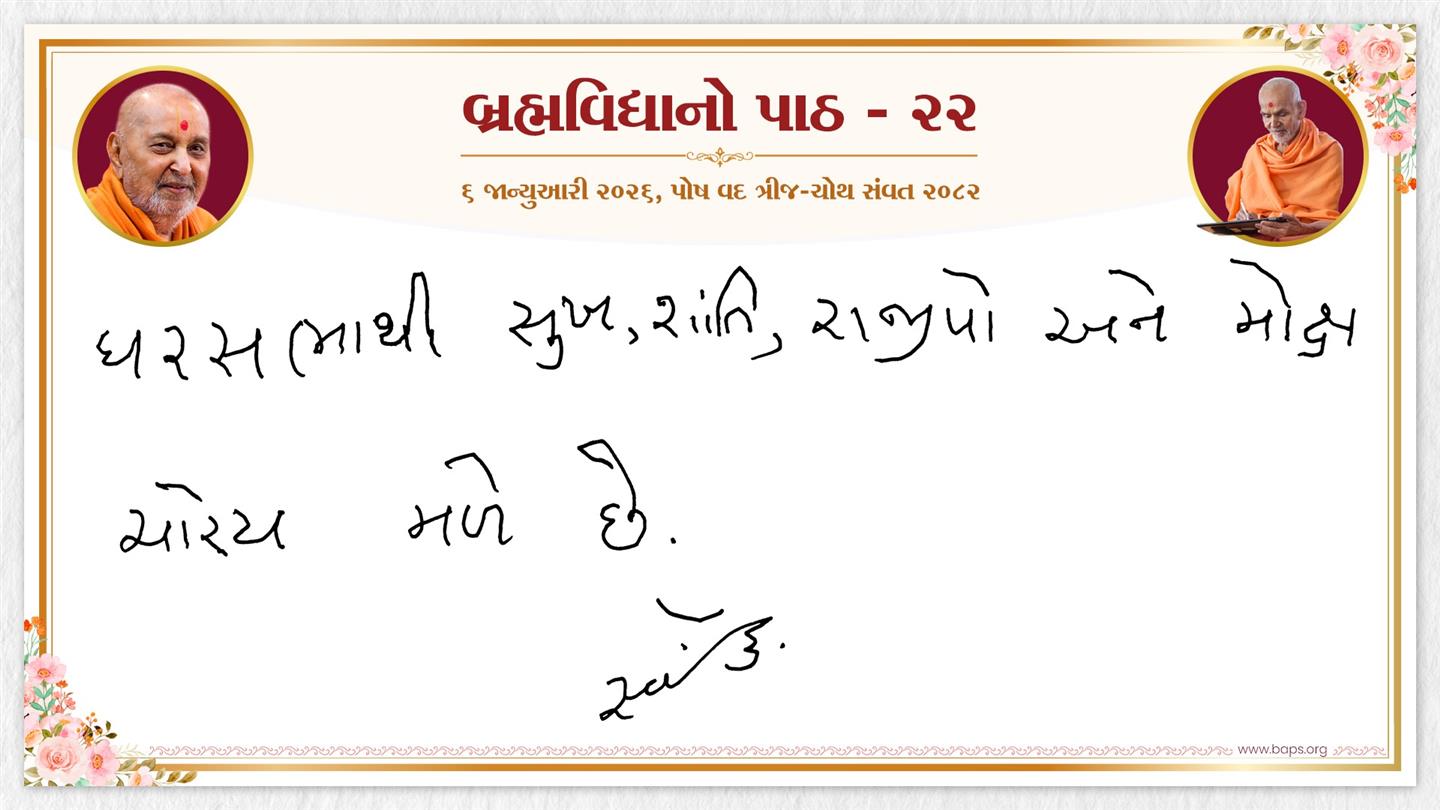 બ્રહ્મવિદ્યાનો પાઠ - ૨૨
૬ જાન્યુઆરી ૨૦૨૬, પોષ વદ ત્રીજ-ચોથ સંવત ૨૦૮૨
ઘરસભાથી સુખ, શાંતિ, રાજીપો અને મોક્ષ
ચોક્કસ મળે છે.
www.baps.org